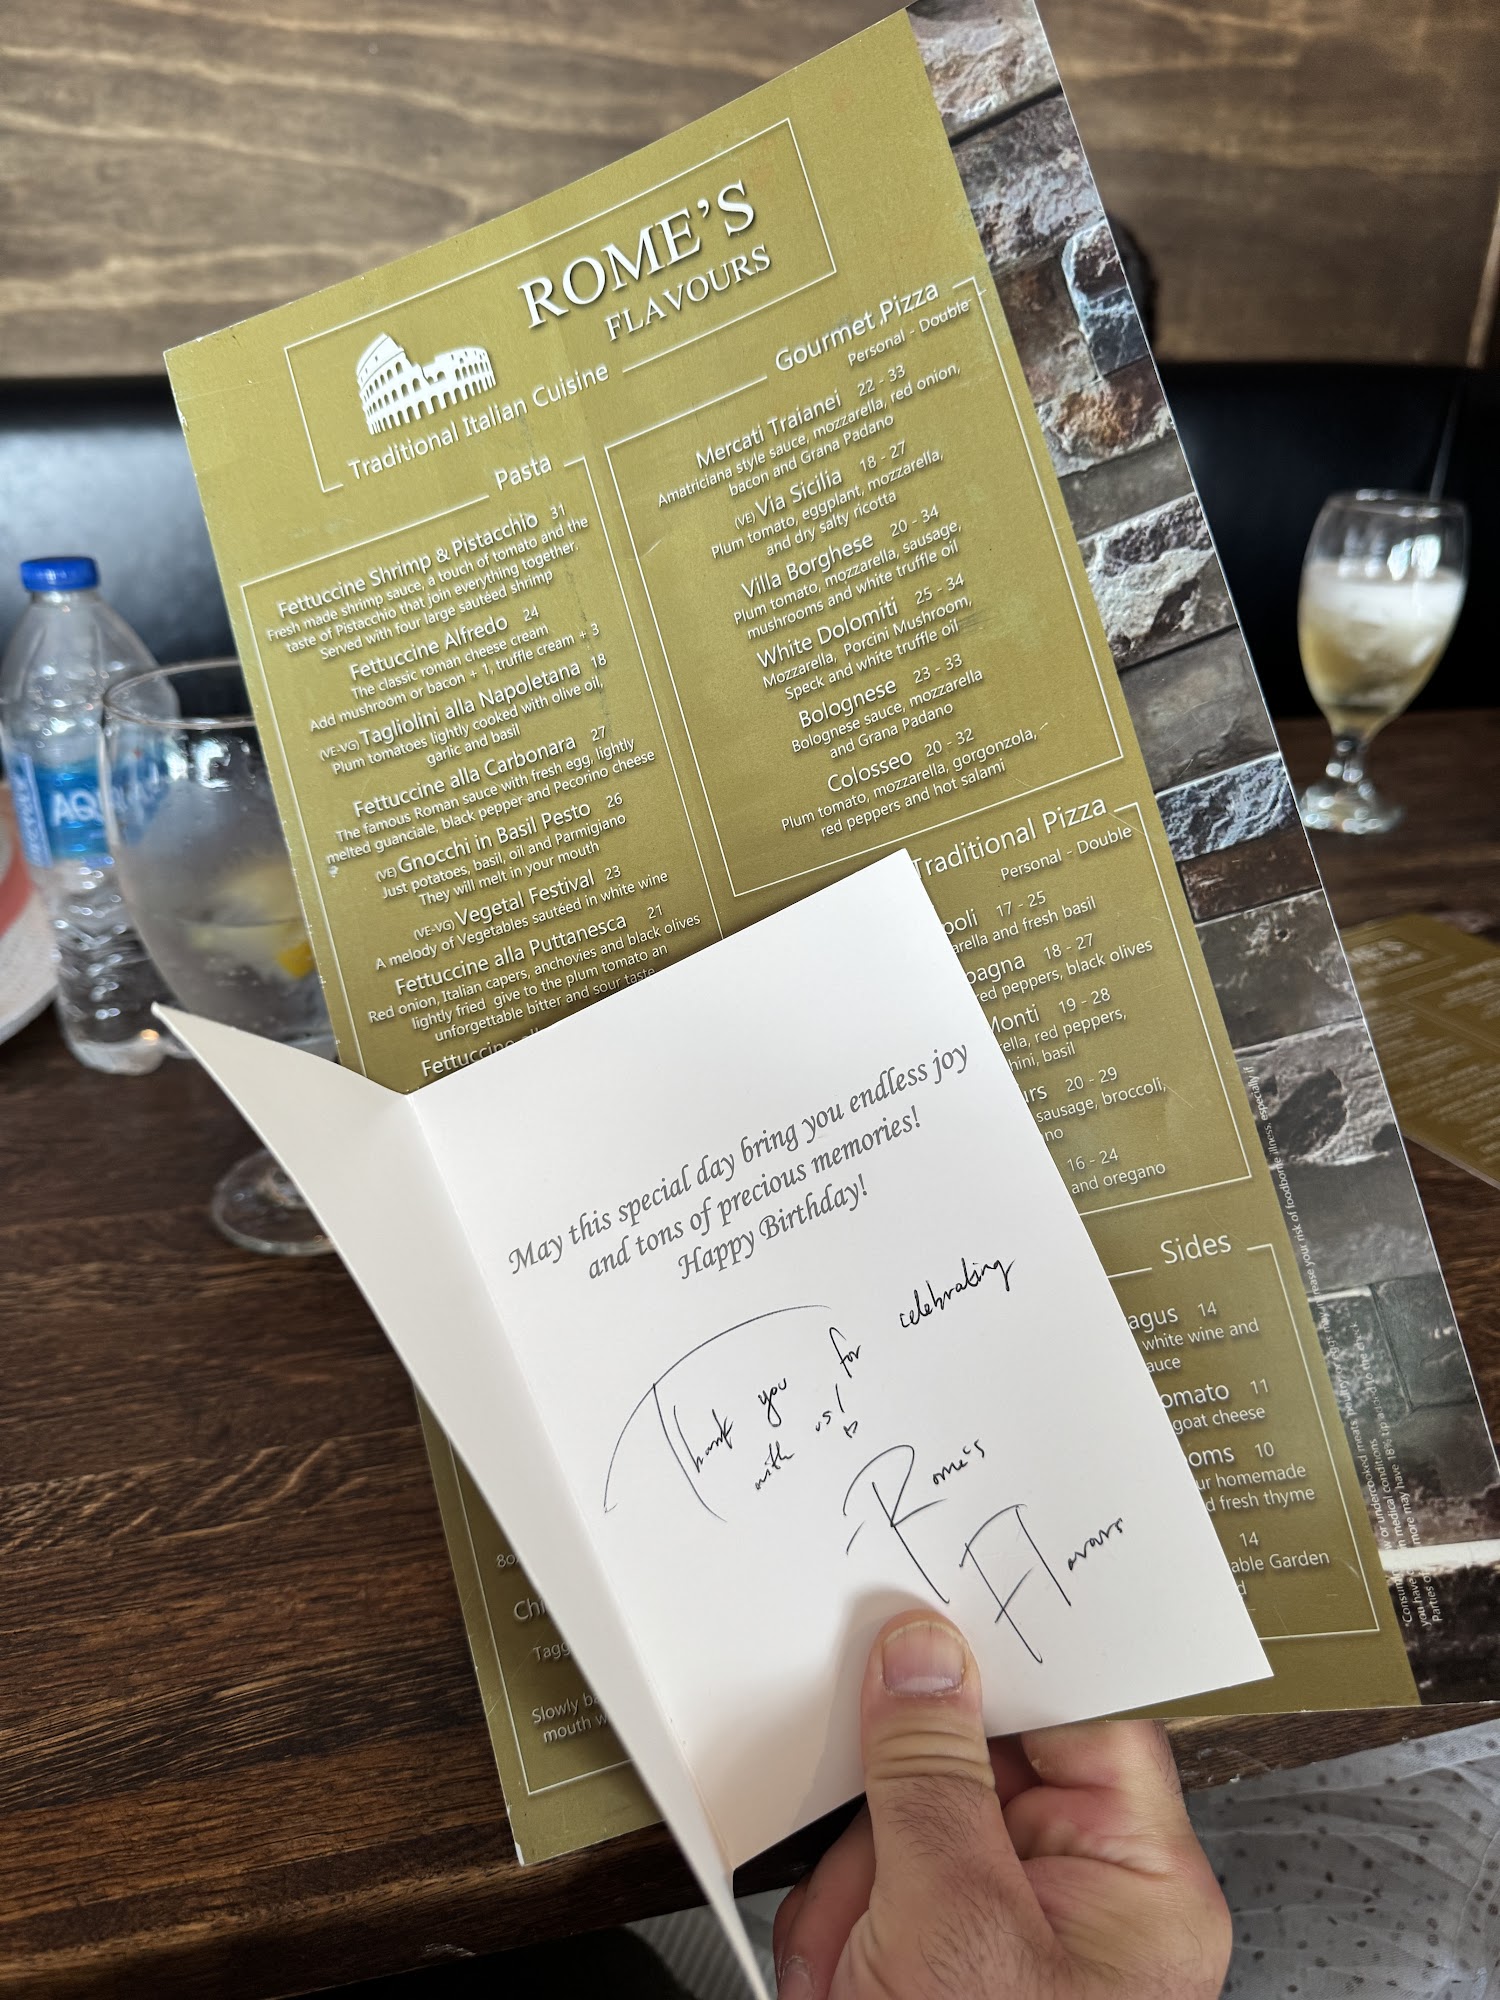 ROME'S
FLAVOURS
Traditional Italian Cuisine
Pasta
Fettuccine Shrimp & Pistacchio 31
Fresh made shrimp sauce, a touch of tomato and the
taste of Pistacchio that join everything together.
Served with four large sautéed shrimp
Fettuccine Alfredo 24
The classic roman cheese cream
Add mushroom or bacon + 1, truffle cream + 3
(VE-VG) Tagliolini alla Napoletana 18
Plum tomatoes lightly cooked with olive oil,
garlic and basil
Fettuccine alla Carbonara 27
The famous Roman sauce with fresh egg, lightly
melted guanciale, black pepper and Pecorino cheese
(VE) Gnocchi in Basil Pesto 26
Just potatoes, basil, oil and Parmigiano
They will melt in your mouth
(VE-VG) Vegetal Festival 23
A melody of Vegetables sautéed in white wine
Fettuccine alla Puttanesca 21
Red onion, Italian capers, anchovies and black olives
lightly fried give to the plum tomato an
unforgettable bitter and sour taste
Fettuccine
Gourmet Pizza
Personal - Double
Mercati Traianei 22 - 33
Amatriciana style sauce, mozzarella, red onion,
bacon and Grana Padano
(VE) Via Sicilia 18 - 27
Plum tomato, eggplant, mozzarella,
and dry salty ricotta
Villa Borghese 20 - 34
Plum tomato, mozzarella, sausage,
mushrooms and white truffle oil
White Dolomiti 25 - 34
Mozzarella, Porcini Mushroom,
Speck and white truffle oil
Bolognese 23 - 33
Bolognese sauce, mozzarella
and Grana Padano
Colosseo 20 - 32
Plum tomato, mozzarella, gorgonzola,
red peppers and hot salami
Traditional Pizza
Personal - Double
17 - 25
and fresh basil
18 - 27
red peppers, black olives
Monti 19 - 28
red peppers,
basil
20 - 29
sausage, broccoli,
16 - 24
and oregano
Sides
14
white wine and
11
goat cheese
10
homemade
fresh thyme
14
Garden
Slowly
mouth
May this special day bring you endless joy
and tons of precious memories!
Happy Birthday!
Thank you for celebrating
with us!
Rome's
Flavours